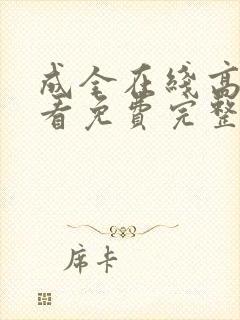 成全在线高
看免费完整
席卡